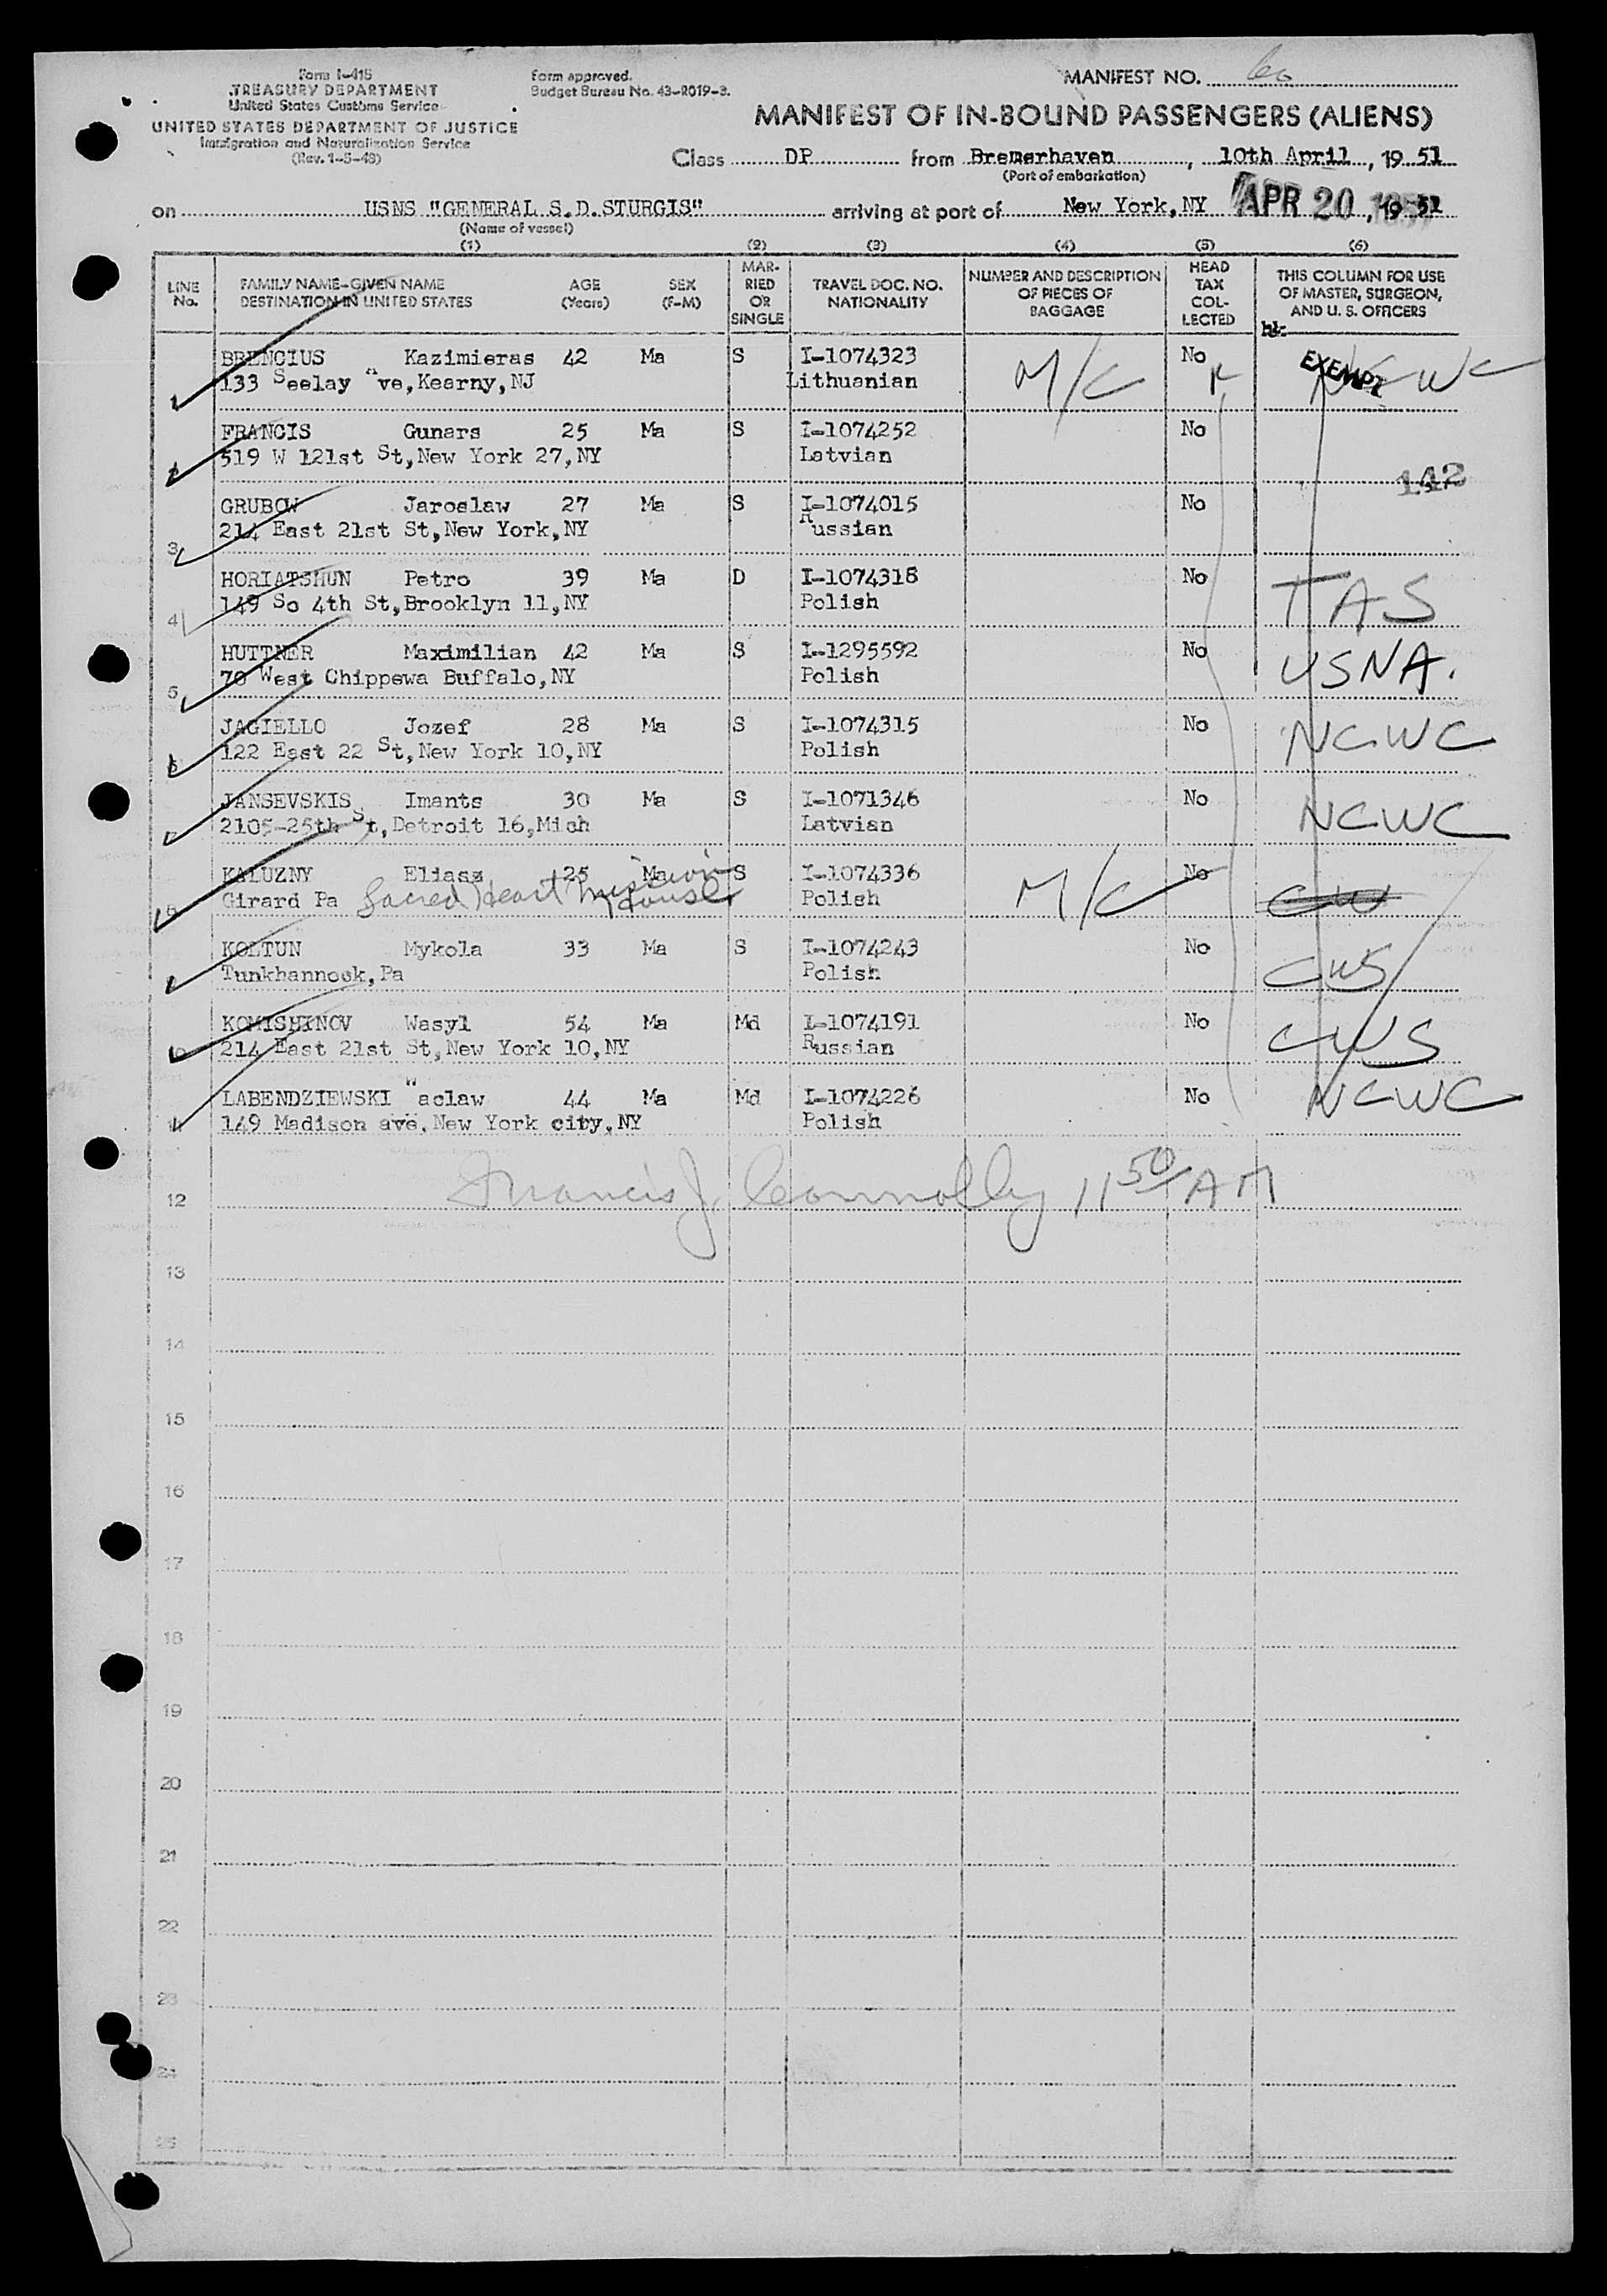 Form I-415
TREASURY DEPARTMENT
United States Customs Service
UNITED STATES DEPARTMENT OF JUSTICE
Immigration and Naturalization Service
(Rev. 1-5-48)
Form approved.
Budget Bureau No. 43-R019-3.
MANIFEST NO.
MANIFEST OF IN-BOUND PASSENGERS (ALIENS)
Class DP from Bremerhaven, 10th April, 19 51
(Port of embarkation)
on USNS "GENERAL S.D.STURGIS" arriving at port of New York,NY APR 20 1951, 19 51
(Name of vessel)
(1) (2) (3) (4) (5) (6)
LINE No. FAMILY NAME-GIVEN NAME DESTINATION IN UNITED STATES AGE (Years) SEX (F-M) MARRIED OR SINGLE TRAVEL DOC. NO. NATIONALITY NUMBER AND DESCRIPTION OF PIECES OF BAGGAGE HEAD TAX COLLECTED THIS COLUMN FOR USE OF MASTER, SURGEON, AND U. S. OFFICERS
1 BRENCIUS Kazimieras 42 Ma S I-1074323 M/C No EXEMPT NCWC
133 Seelay Ave,Kearny,NJ Lithuanian
2 FRANCIS Gunars 25 Ma S I-1074252 No
519 W 121st St,New York 27,NY Latvian
142
3 GRUBOW Jaroslaw 27 Ma S I-1074015 No
214 East 21st St,New York,NY Russian
4 HORIATSHUN Petro 39 Ma D I-1074318 No TAS
149 So 4th St,Brooklyn 11,NY Polish
5 HUTTNER Maximilian 42 Ma S I-1295592 No USNA.
70 West Chippewa Buffalo,NY Polish
6 JAGIELLO Jozef 28 Ma S I-1074315 No NCWC
122 East 22 St,New York 10,NY Polish
7 JANSEVSKIS Imants 30 Ma S I-1071346 No NCWC
2105-25th St,Detroit 16,Mich Latvian
8 KALUZNY Eliasz 25 Ma S I-1074336 M/C No CW
Girard Pa Sacred Heart Mission House Polish
9 KOLTUN Mykola 33 Ma S I-1074243 No CWS
Tunkhannock,Pa Polish
10 KOMISHINOV Wasyl 54 Ma Md I-1074191 No CWS
214 East 21st St,New York 10,NY Russian
11 LABENDZIEWSKI Waclaw 44 Ma Md I-1074226 No NCWC
149 Madison ave, New York city,NY Polish
12 Francis J. Connolly 11 50/AM
13
14
15
16
17
18
19
20
21
22
23
24
25